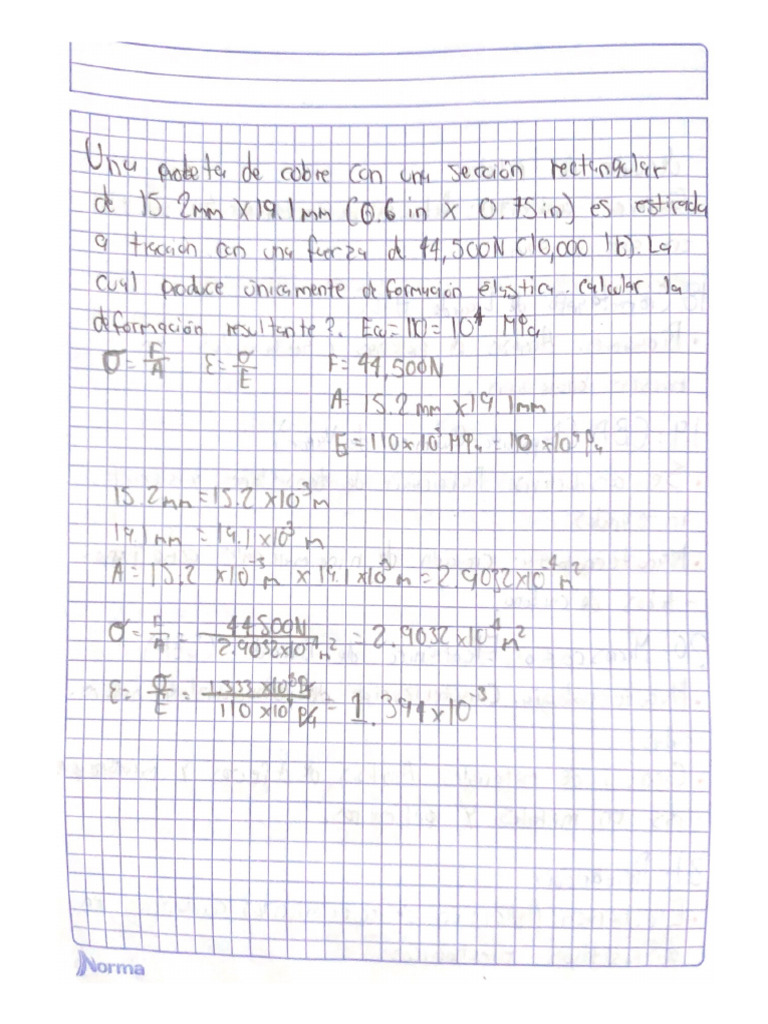 Una probeta de cobre con una sección rectangular
de 15.2mm X 19.1mm (0.6 in X 0.75in) es estirada
a traccion con una fuerza d 44,500N (10,000 lb). La
cual produce únicamente deformación elástica. calcular la
deformación resultante?. Ecu = 110 = 10⁴ MPa
σ = F/A ε = σ/E F = 44,500N
A = 15.2 mm x 19.1mm
E = 110 x 10³ MPa = 110 x 10⁹ Pa
15.2mm = 15.2 x 10⁻³ m
19.1 mm = 19.1 x 10⁻³ m
A = 15.2 x 10⁻³ m x 19.1 x 10⁻³ m = 2.9032 x 10⁻⁴ m²
σ = F/A = 44500N / 2.9032 x 10⁻⁴ m² = 2.9032 x 10⁻⁴ m²
ε = σ/E = 1.533 x 10⁸ Pa / 110 x 10⁹ Pa = 1.394 x 10⁻³
Norma